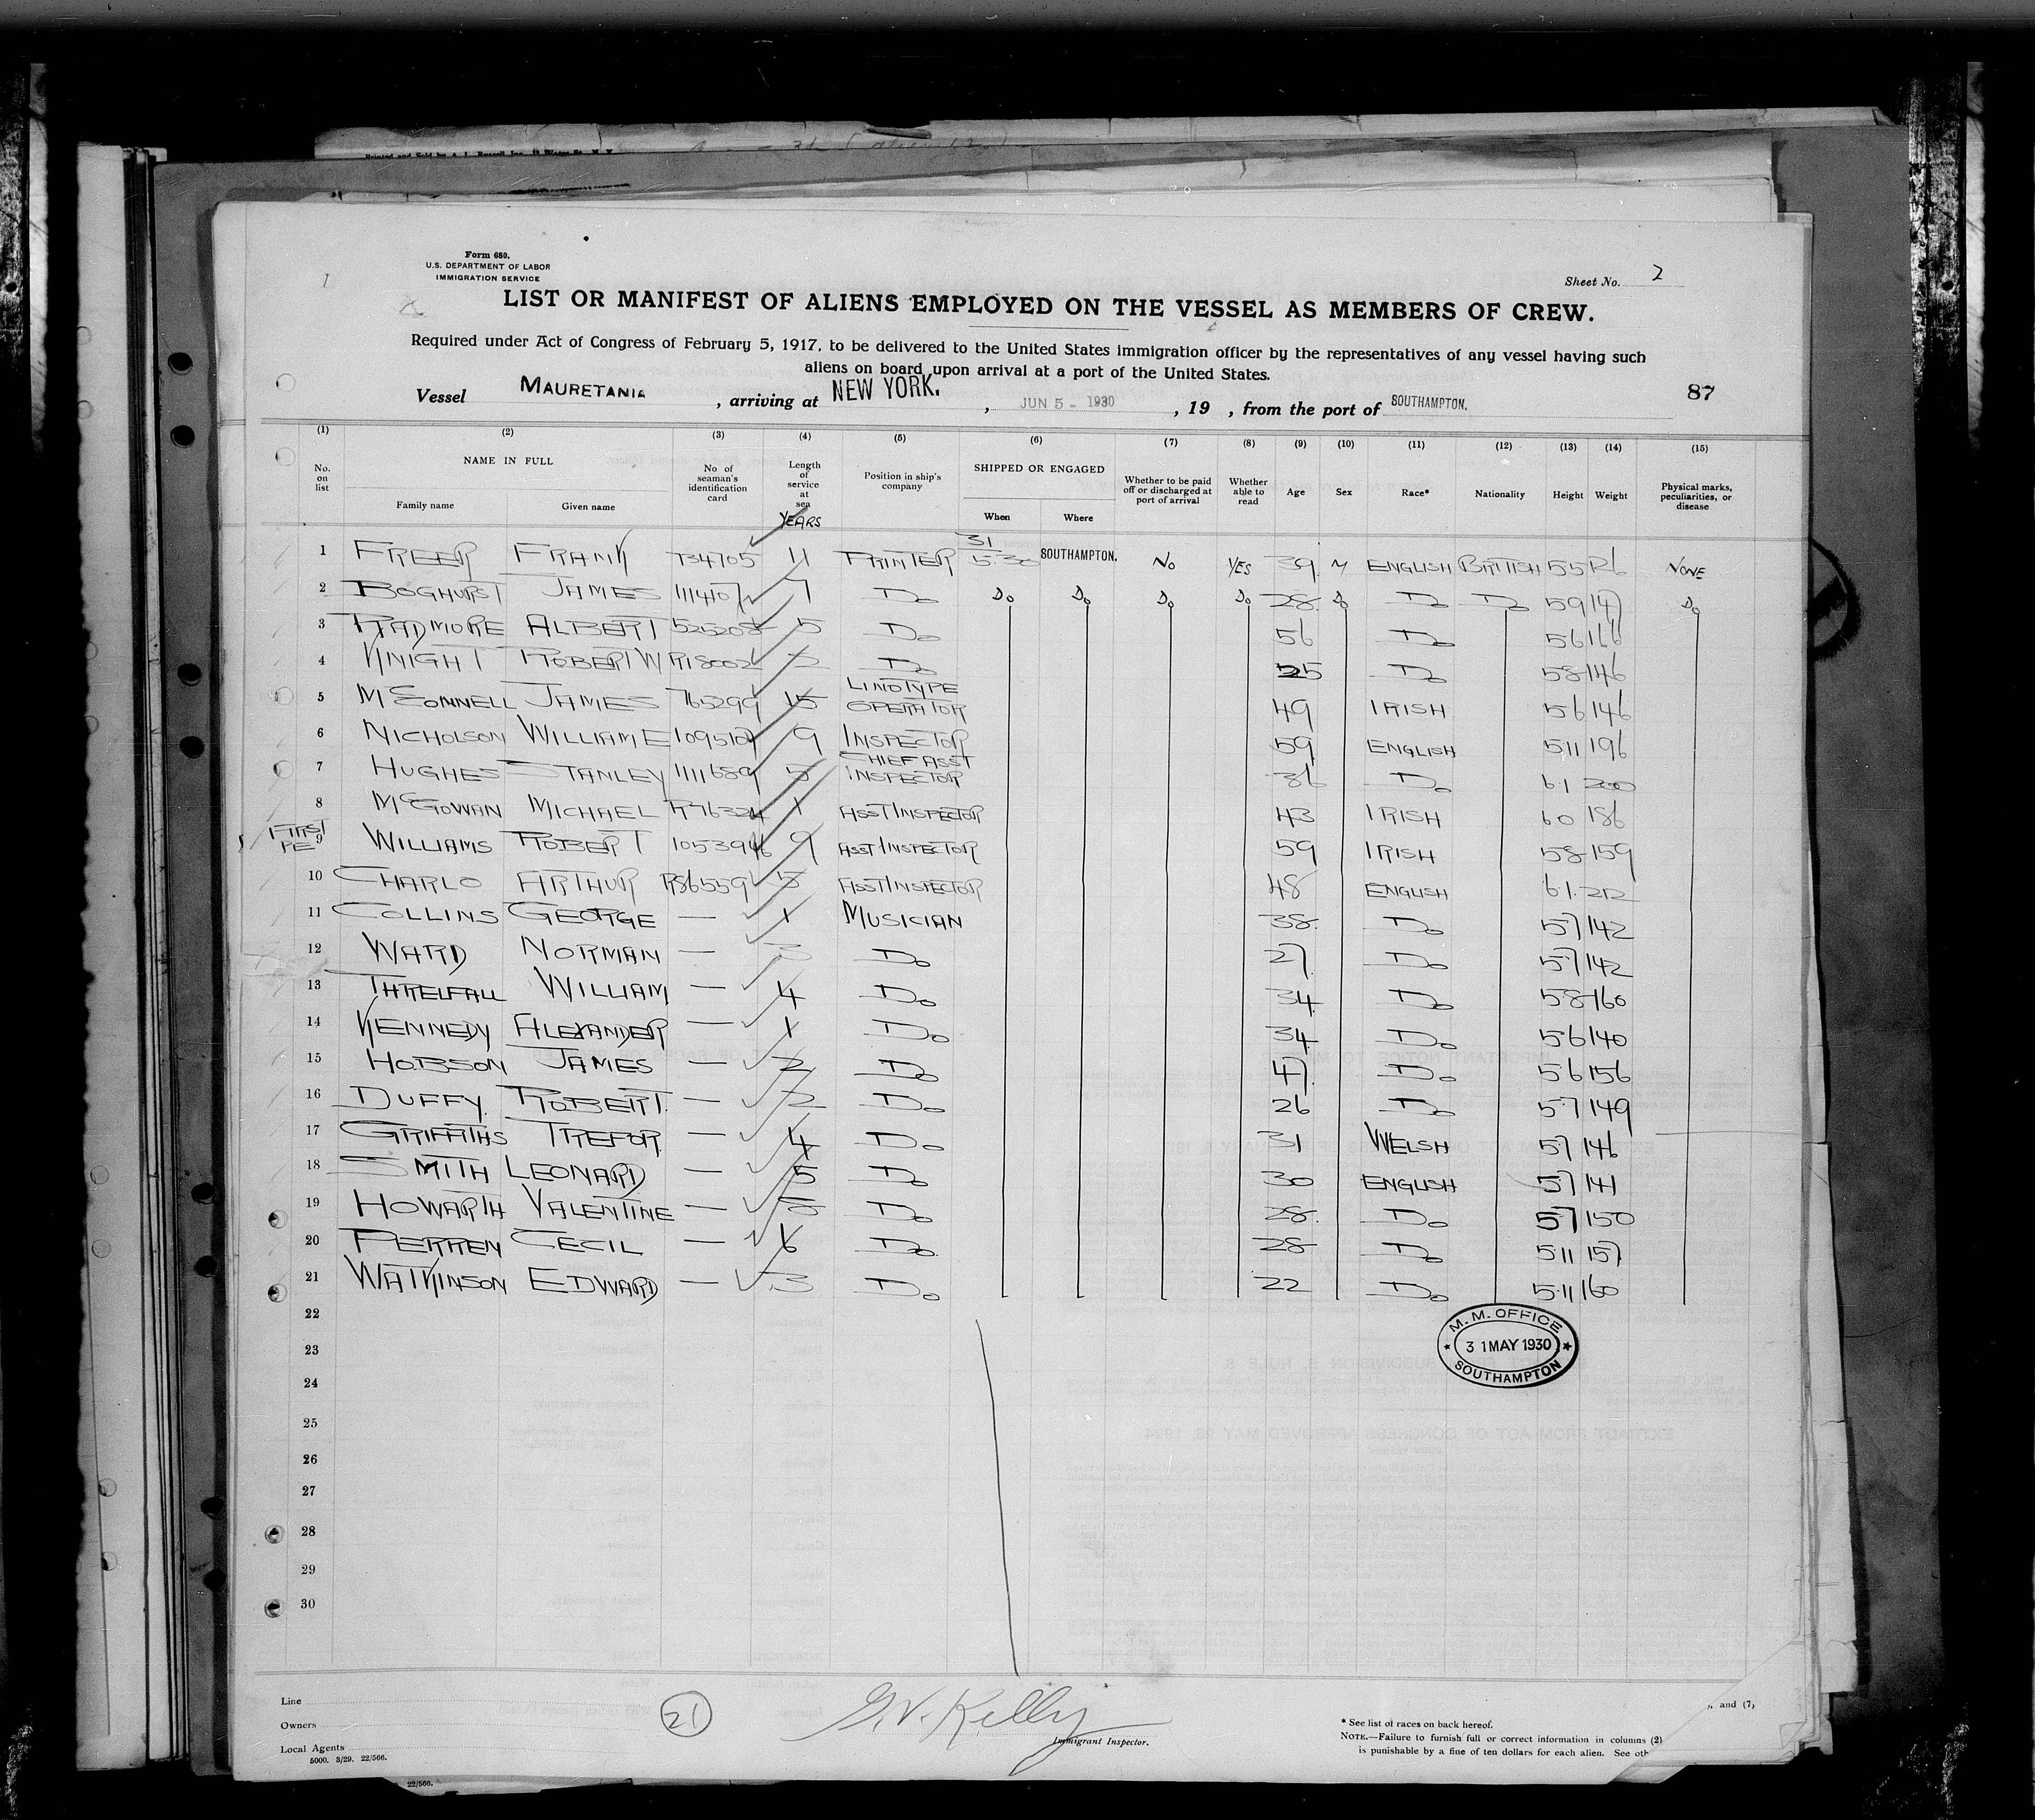 Form 680.
U.S. DEPARTMENT OF LABOR
IMMIGRATION SERVICE
Sheet No. 2
LIST OR MANIFEST OF ALIENS EMPLOYED ON THE VESSEL AS MEMBERS OF CREW.
Required under Act of Congress of February 5, 1917, to be delivered to the United States immigration officer by the representatives of any vessel having such
aliens on board upon arrival at a port of the United States.
87
Vessel MAURETANIA, arriving at NEW YORK., JUN 5 - 1930, 19 , from the port of SOUTHAMPTON.
(1) (2) (3) (4) (5) (6) (7) (8) (9) (10) (11) (12) (13) (14) (15)
No. on list NAME IN FULL Family name Given name No of seaman's identification card Length of service at sea YEARS Position in ship's company SHIPPED OR ENGAGED When Where Whether to be paid off or discharged at port of arrival Whether able to read Age Sex Race* Nationality Height Weight Physical marks, peculiarities, or disease
1 FREER FRANK 734705 11 PRINTER 31 5.30 SOUTHAMPTON. NO YES 39. M ENGLISH BRITISH 55 126 NONE
2 BOGHURST JAMES 1114107 7 Do Do Do Do Do 28. Do Do Do 59 147 Do
3 RADMORE ALBERT 525208 5 Do 56 Do 56 166
4 KNIGHT ROBERT W R18002 2 Do 25 Do 58 146
5 McCONNELL JAMES 765299 15 LINOTYPE OPERATOR 49 IRISH 56 146
6 NICHOLSON WILLIAM E 109510 9 INSPECTOR 59 ENGLISH 511 196
7 HUGHES STANLEY 1111689 5 CHIEF ASST INSPECTOR 36 Do 6.1 200
8 McGOWAN MICHAEL R76324 1 ASST INSPECTOR 43 IRISH 60 186
FIRST
9 WILLIAMS ROBERT 1053946 9 ASST INSPECTOR 59 IRISH 58 159
10 CHARLO ARTHUR R86559 5 ASST INSPECTOR 48 ENGLISH 6.1. 212
11 COLLINS GEORGE — 1 MUSICIAN 38. Do 57 142
12 WARD NORMAN — 3 Do 27. Do 57 142
13 THRELFALL WILLIAM — 4 Do 34 Do 58 160
14 KENNEDY ALEXANDER — 1 Do 34 Do 56 140
15 HOBSON JAMES — 2 Do 47. Do 56 156
16 DUFFY. ROBERT. — 2 Do 26 Do 57 149
17 GRIFFITHS TREFOR — 4 Do 31 WELSH 57 146
18 SMITH LEONARD — 5 Do 30 ENGLISH 57 141
19 HOWARTH VALENTINE — 5 Do 28. Do 57 150
20 PERREN CECIL — 6 Do 28 Do 511 157
21 WATKINSON EDWARD — 3 Do 22 Do 5.11 160
22
M. M. OFFICE
23
31 MAY 1930
SOUTHAMPTON
24
25
26
27
28
29
30
Line
Owners
Local Agents
5000. 3/29. 22/566.
21
G. V. Kelly
Immigrant Inspector.
, and (7)
* See list of races on back hereof.
NOTE.—Failure to furnish full or correct information in columns (2)
is punishable by a fine of ten dollars for each alien. See oth
22/566.